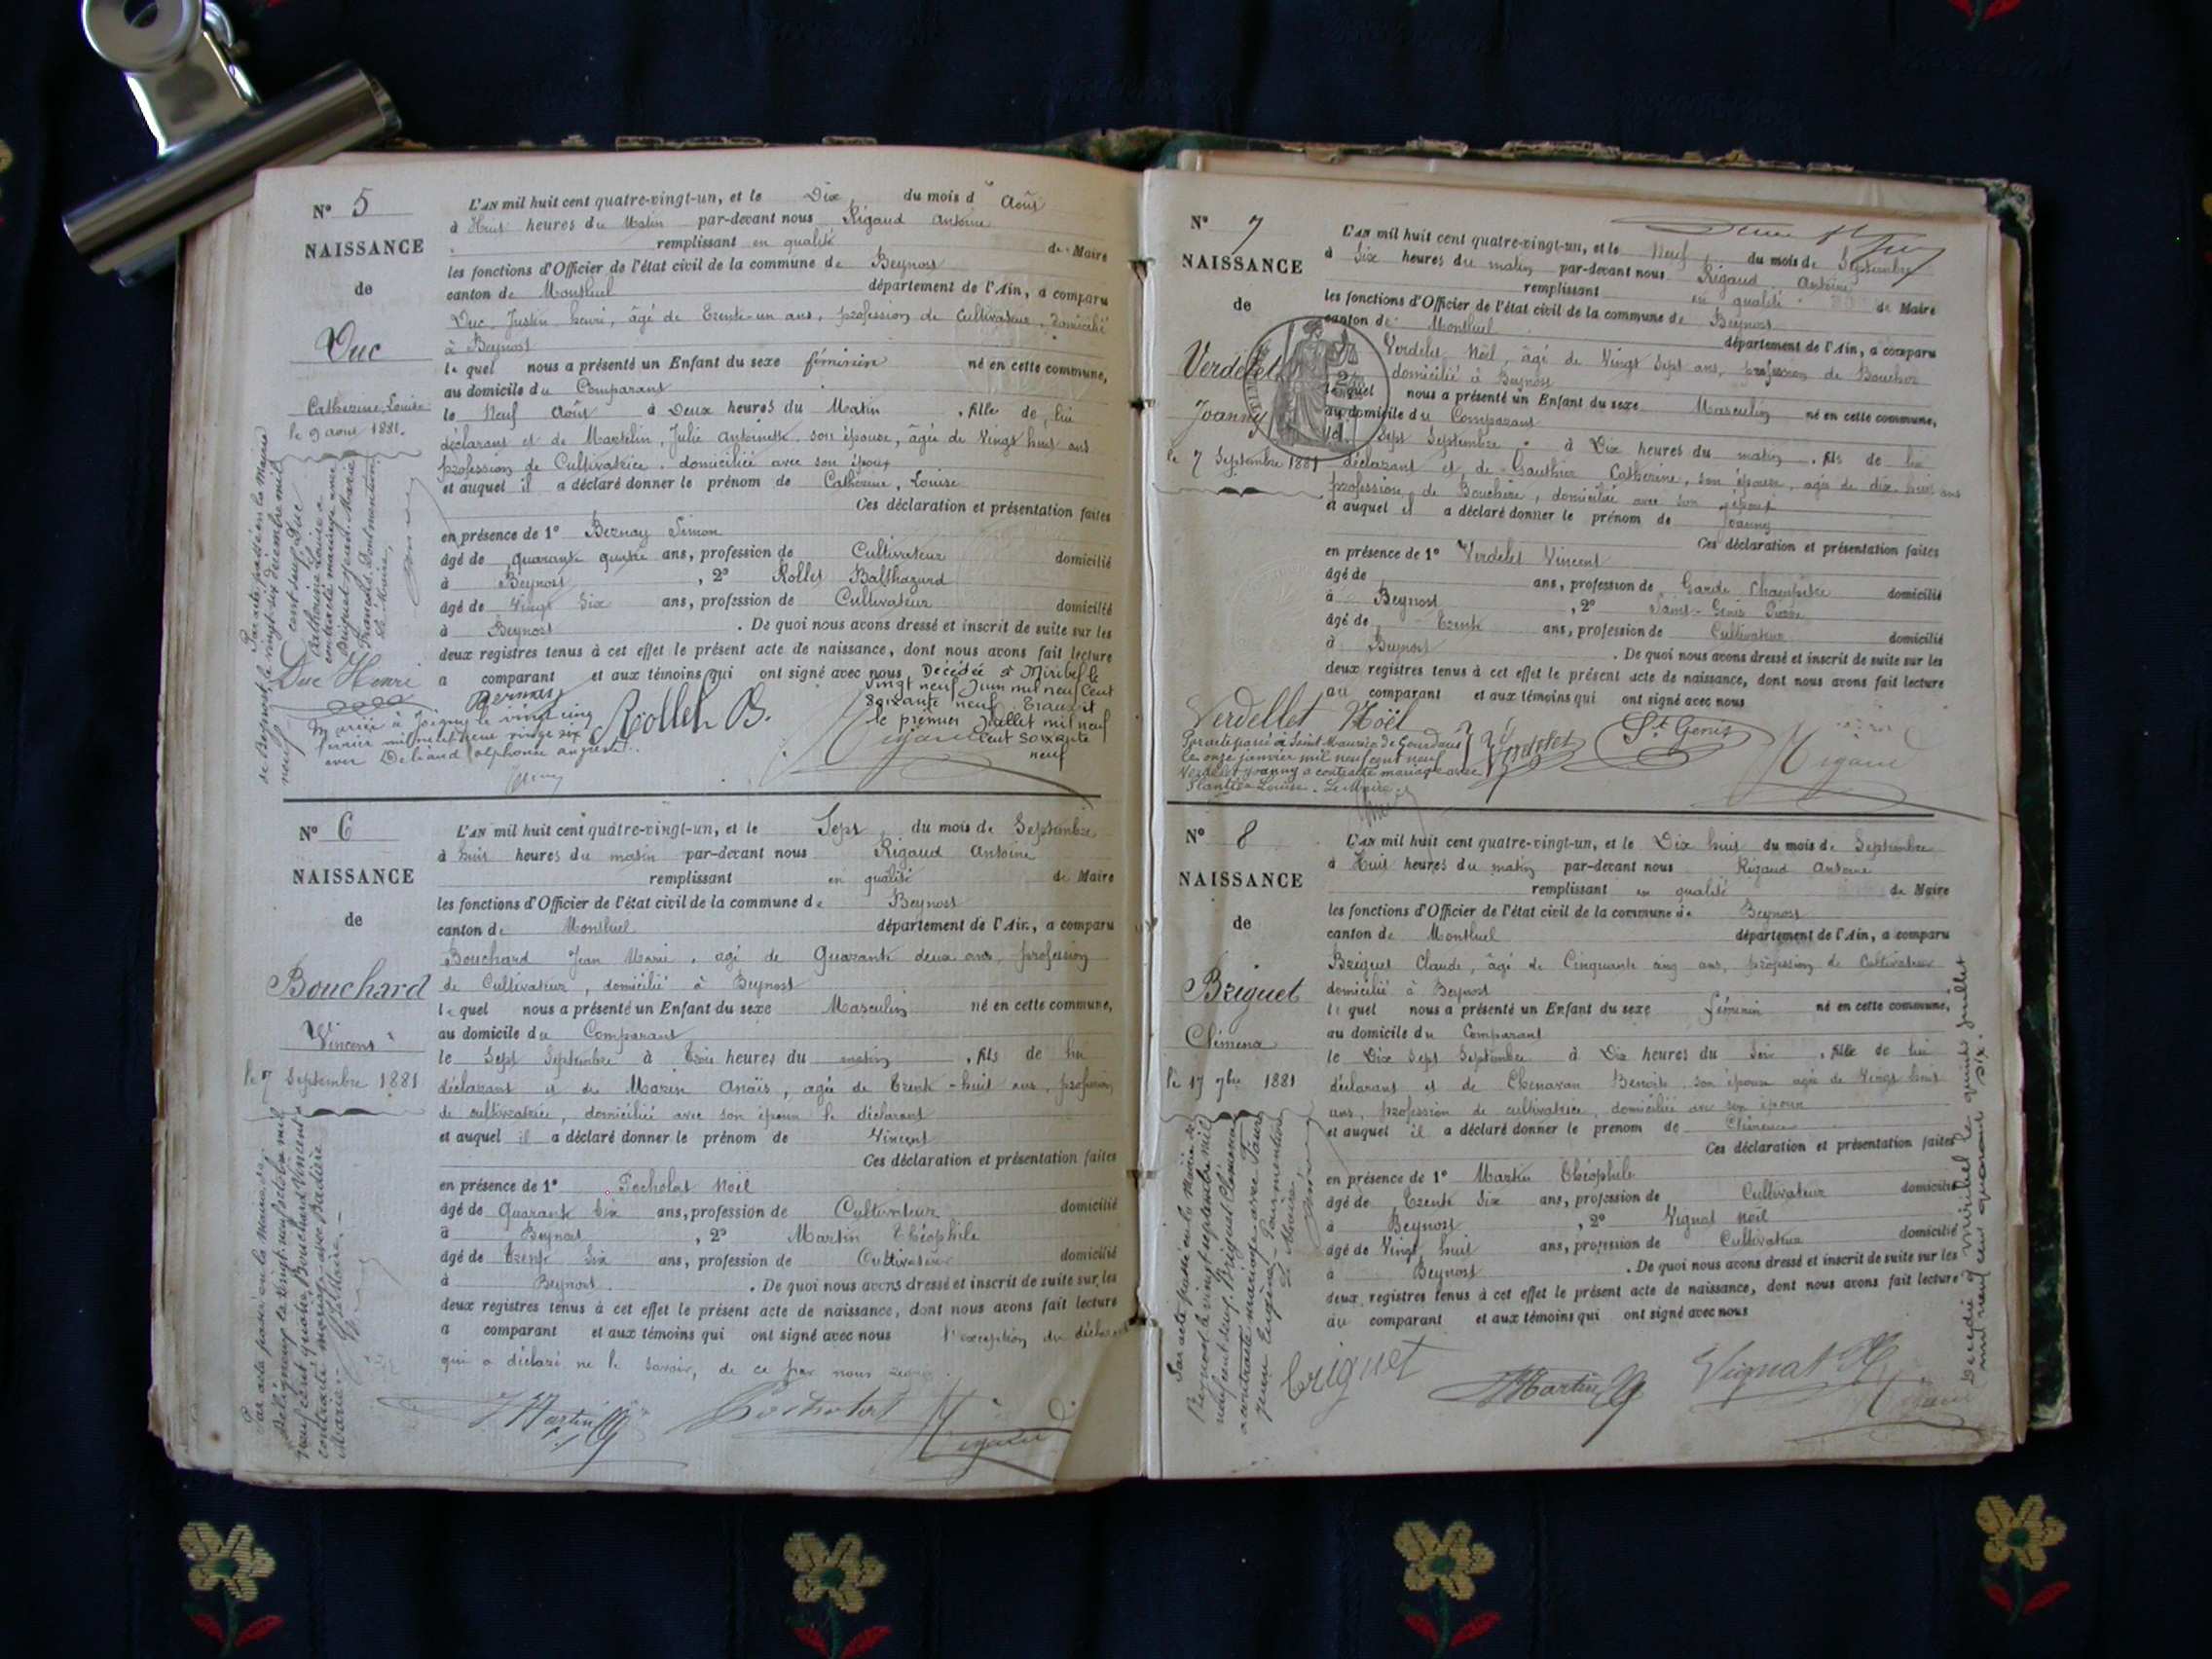 N° 5
NAISSANCE
de
Duc
Catherine Louise
le 9 aout 1881.
L'AN mil huit cent quatre-vingt-un, et le Dix du mois d' Août
à Huit heures du Matin par-devant nous Rigaud Antoine
remplissant en qualité de Maire
les fonctions d'Officier de l'état civil de la commune de Beynost
canton de Montluel département de l'Ain, a comparu
Duc Justin henri, âgé de Trente-un ans, profession de Cultivateur, domicilié
à Beynost
lequel nous a présenté un Enfant du sexe féminin né en cette commune,
au domicile du Comparant
le Neuf Août à Deux heures du Matin, fille de lui
déclarant et de Martelin, Julie Antoinette son épouse, âgée de Vingt huit ans
profession de Cultivatrice, domiciliée avec son époux
et auquel il a déclaré donner le prénom de Catherine, Louise
Ces déclaration et présentation faites
en présence de 1° Bernay Simon
âgé de quarante quatre ans, profession de Cultivateur domicilié
à Beynost, 2° Rollet Balthazard
âgé de Vingt Six ans, profession de Cultivateur domicilié
à Beynost. De quoi nous avons dressé et inscrit de suite sur les
deux registres tenus à cet effet le présent acte de naissance, dont nous avons fait lecture
a comparant et aux témoins qui ont signé avec nous
Décédée à Miribel le
vingt neuf Juin mil neuf Cent
soixante neuf. Transcrit
le premier Juillet mil neuf
cent soixante
neuf
Duc Henri
Bernay
Rollet B.
Rigaud
Mariée à Joigny le vingt cinq
février mil neuf cent vingt six
avec Deliand alphonse auguste
Par acte passé en la Mairie
de Beynost, le vingt-six décembre mil
neuf cent neuf, Duc
Catherine Louise a
contracté mariage avec
Briguet Jean Marie
François. Dont mention.
Le Maire,
N° 6
NAISSANCE
de
Bouchard
Vincent
le 7 Septembre 1881
L'AN mil huit cent quatre-vingt-un, et le Sept du mois de Septembre
à huit heures du matin par-devant nous Rigaud Antoine
remplissant en qualité de Maire
les fonctions d'Officier de l'état civil de la commune de Beynost
canton de Montluel département de l'Ain, a comparu
Bouchard Jean Marie, agé de Quarante deux ans, profession
de Cultivateur, domicilié à Beynost
lequel nous a présenté un Enfant du sexe Masculin né en cette commune,
au domicile du Comparant
le Sept Septembre à Trois heures du matin, fils de lui
déclarant et de Marin Anaïs, agée de Trente-huit ans, profession
de cultivatrice, domiciliée avec son époux le déclarant
et auquel il a déclaré donner le prénom de Vincent
Ces déclaration et présentation faites
en présence de 1° Pocholat Noël
âgé de Quarante Six ans, profession de Cultivateur domicilié
à Beynost, 2° Martin Théophile
âgé de Trente Six ans, profession de Cultivateur domicilié
à Beynost. De quoi nous avons dressé et inscrit de suite sur les
deux registres tenus à cet effet le présent acte de naissance, dont nous avons fait lecture
a comparant et aux témoins qui ont signé avec nous l'exception du déclarant
qui a déclaré ne le savoir, de ce par nous requis.
Martin
Pocholat
Rigaud
Par acte passé en la Mairie de
le vingt-neuf octobre mil
neuf cent quatre, Bouchard Vincent a
contracté mariage avec Badière
Marie.
Le Maire.
N° 7
NAISSANCE
de
Verdelet
Joanny
le 7 Septembre 1881
L'AN mil huit cent quatre-vingt-un, et le Neuf du mois de Septembre
à Six heures du matin par-devant nous Rigaud Antoine
remplissant en qualité de Maire
les fonctions d'Officier de l'état civil de la commune de Beynost
canton de Montluel département de l'Ain, a comparu
Verdelet Noël, âgé de Vingt Sept ans, profession de Boucher
domicilié à Beynost
lequel nous a présenté un Enfant du sexe Masculin né en cette commune,
au domicile du Comparant
Sept Septembre à Dix heures du matin, fils de lui
déclarant et de Gauthier Catherine, son épouse, agée de dix-huit ans
profession de Bouchère, domiciliée avec son époux
et auquel il a déclaré donner le prénom de Joanny
Ces déclaration et présentation faites
en présence de 1° Verdelet Vincent
âgé de ans, profession de Garde Champêtre domicilié
à Beynost, 2° Saint-Genis Pierre
âgé de Trente ans, profession de Cultivateur domicilié
à Beynost. De quoi nous avons dressé et inscrit de suite sur les
deux registres tenus à cet effet le présent acte de naissance, dont nous avons fait lecture
au comparant et aux témoins qui ont signé avec nous
Verdellet Noël
Verdelet
St Genis
Rigaud
Par acte passé à Saint Maurice de Gourdans
le onze janvier mil neuf cent neuf
Verdelet Joanny a contracté mariage avec
Plantier Louise. Le Maire.
N° 8
NAISSANCE
de
Briguet
Clémence
le 17 7bre 1881
L'AN mil huit cent quatre-vingt-un, et le Dix huit du mois de Septembre
à Huit heures du matin par-devant nous Rigaud Antoine
remplissant en qualité de Maire
les fonctions d'Officier de l'état civil de la commune de Beynost
canton de Montluel département de l'Ain, a comparu
Briguet Claude, âgé de Cinquante cinq ans, profession de Cultivateur
domicilié à Beynost
lequel nous a présenté un Enfant du sexe féminin né en cette commune,
au domicile du Comparant
le Dix Sept Septembre à Dix heures du Soir, fille de lui
déclarant et de Chenavan Benoite son épouse agée de Vingt huit
ans, profession de cultivatrice, domiciliée avec son époux
et auquel il a déclaré donner le prenom de Clémence
Ces déclaration et présentation faites
en présence de 1° Martin Théophile
âgé de Trente Six ans, profession de Cultivateur domicilié
à Beynost, 2° Vignat Noël
âgé de Vingt huit ans, profession de Cultivateur domicilié
à Beynost. De quoi nous avons dressé et inscrit de suite sur les
deux registres tenus à cet effet le présent acte de naissance, dont nous avons fait lecture
au comparant et aux témoins qui ont signé avec nous
Briguet
Martin
Vignat
Rigaud
Par acte passé en la Mairie de
Beynost le vingt septembre mil
neuf cent neuf, Briguet Clémence
a contracté mariage avec Faure
Jean Eugène. Pour mention
Le Maire,
Decédié à Miribel le quinze Juillet
mil neuf cent quarante six.